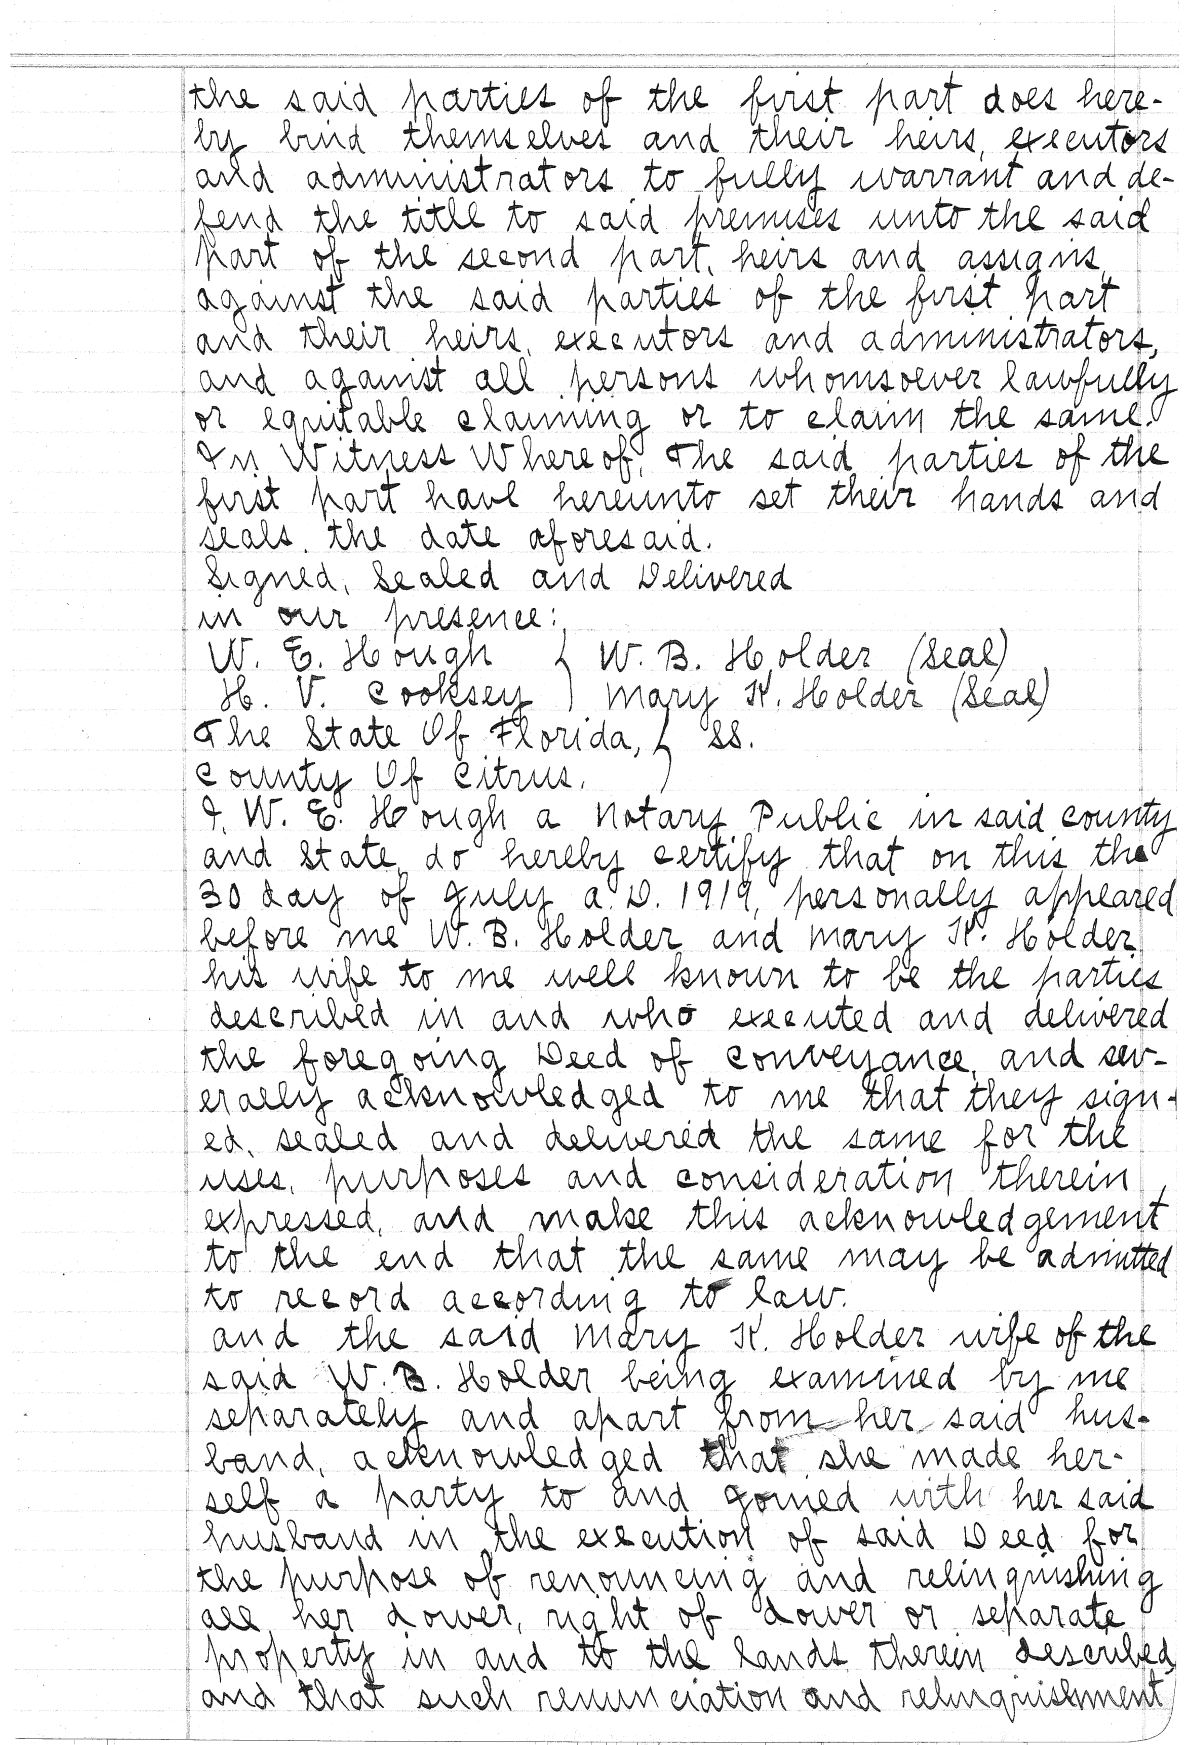 the said parties of the first part does here-
by bind themselves and their heirs, executors
and administrators to fully warrant and de-
fend the title to said premises unto the said
part of the second part, heirs and assigns,
against the said parties of the first part
and their heirs, executors and administrators,
and against all persons whomsoever lawfully
or equitable claiming or to claim the same.
In Witness Whereof, The said parties of the
first part have hereunto set their hands and
seals, the date aforesaid.
Signed, Sealed and Delivered
in our presence:
W. E. Hough } W. B. Holder (Seal)
H. V. Cooksey } Mary K. Holder (Seal)
The State Of Florida, } SS.
County Of Citrus. }
I, W. E. Hough a Notary Public in said county
and State, do hereby certify that on this the
30 day of July A. D. 1919, personally appeared
before me W. B. Holder and Mary K. Holder,
his wife to me well known to be the parties
described in and who executed and delivered
the foregoing Deed of Conveyance, and sev-
erally acknowledged to me that they sign-
ed, sealed and delivered the same for the
uses, purposes and consideration therein
expressed, and make this acknowledgement
to the end that the same may be admitted
to record according to law.
and the said Mary K. Holder wife of the
said W. B. Holder being examined by me
separately and apart from her said hus-
band, acknowledged that she made her-
self a party to and joined with her said
husband in the execution of said Deed for
the purpose of renouncing and relinquishing
all her dower, right of dower or separate
property in and to the lands therein described,
and that such renunciation and relinquishment